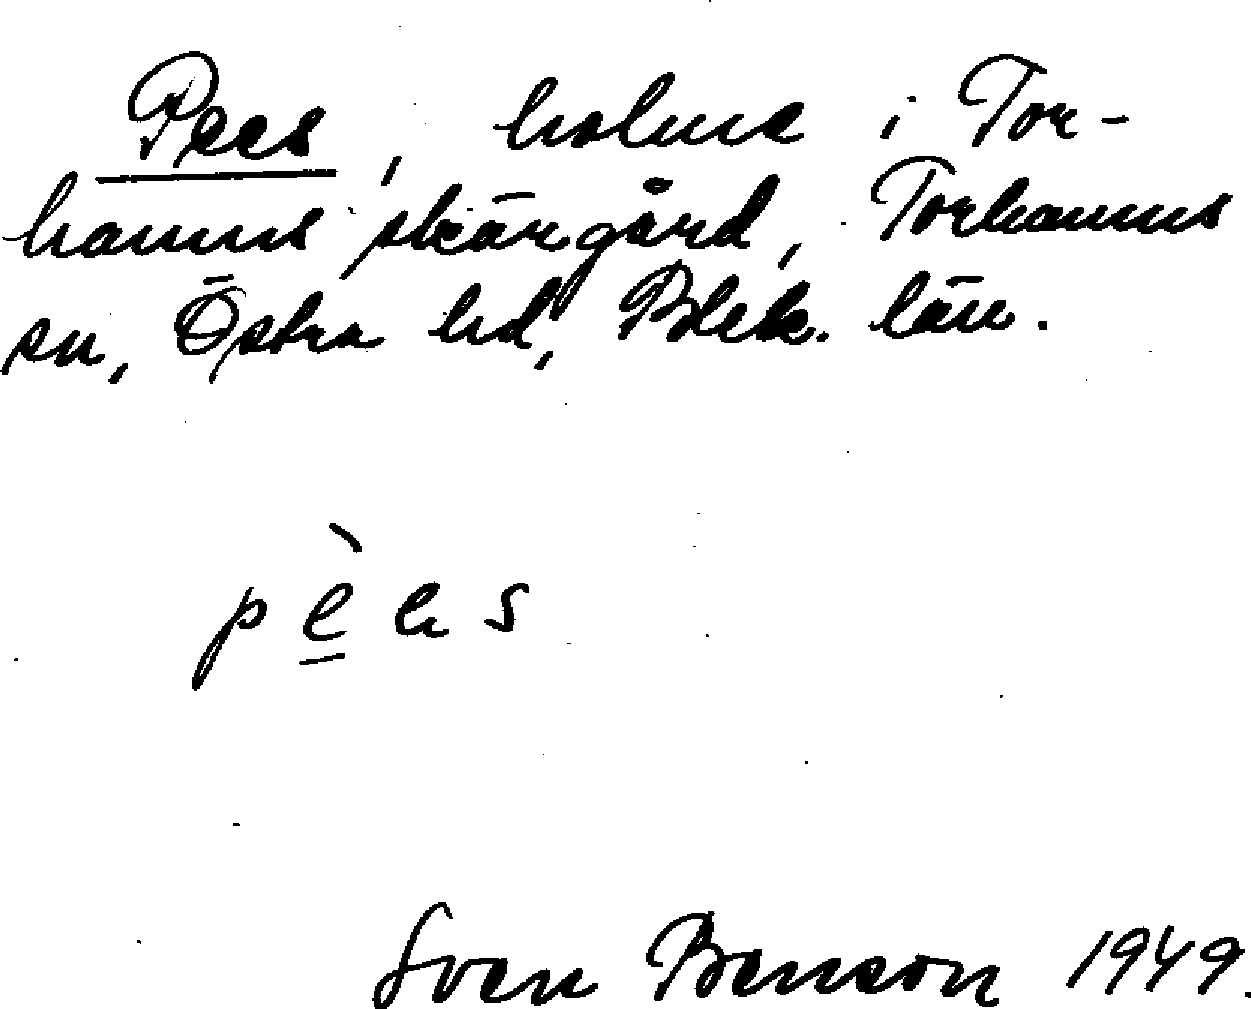 Pees, holme i Tor-
hamns skärgård, Torhamns
sn, Östra hd, Blek. län.
pè̱es
Sven Benson 1949.